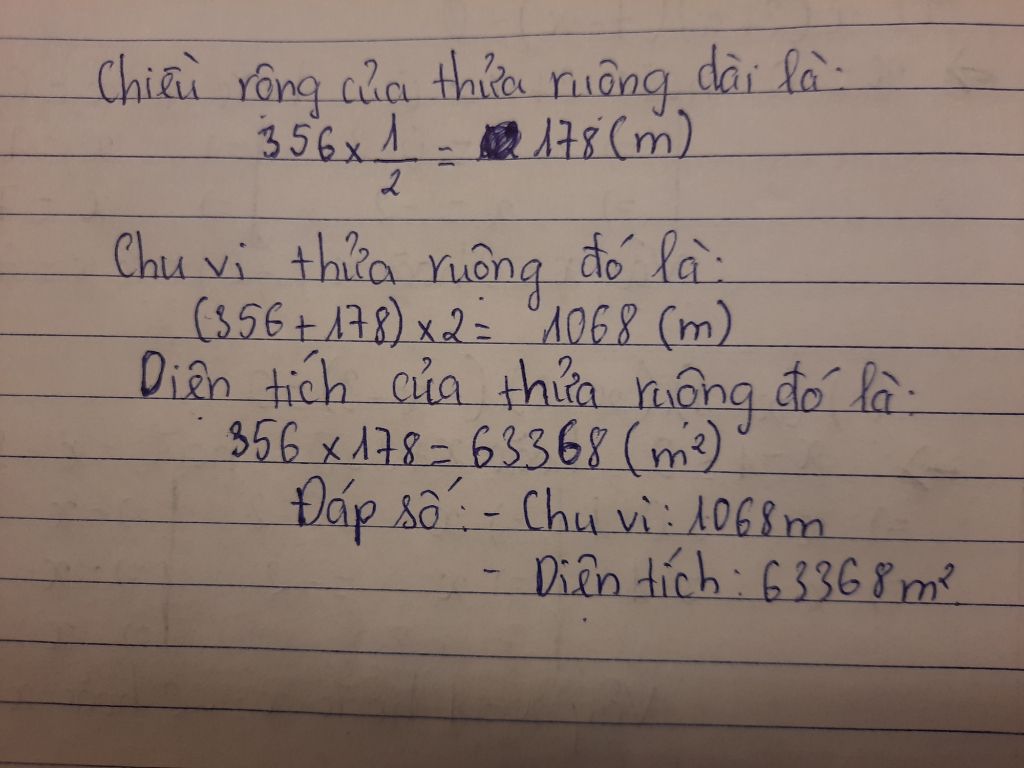 Chiều rộng của thửa ruộng dài là:
356 × 1/2 = 178 (m)
Chu vi thửa ruộng đó là:
(356 + 178) × 2 = 1068 (m)
Diện tích của thửa ruộng đó là:
356 × 178 = 63368 (m²)
Đáp số: - Chu vi: 1068m
- Diện tích: 63368m²